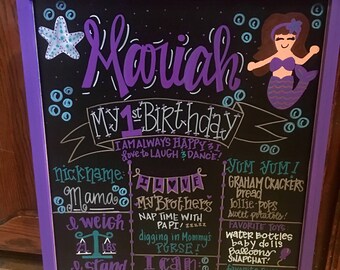 Mariah
My 1st Birthday
I AM ALWAYS HAPPY &
love to LAUGH & DANCE!
nickname:
Mama
I weigh
lbs
I stand
My Brothers
NAP TIME WITH
PAPI!
digging in Mommy's
PURSE!
I can
YUM YUM!
GRAHAM CRACKERS
bread
lollie-pops
sweet potatoes!
FAVORITE TOYS
WATER BOTTLES
baby dolls
BALLOONS
SWINGING